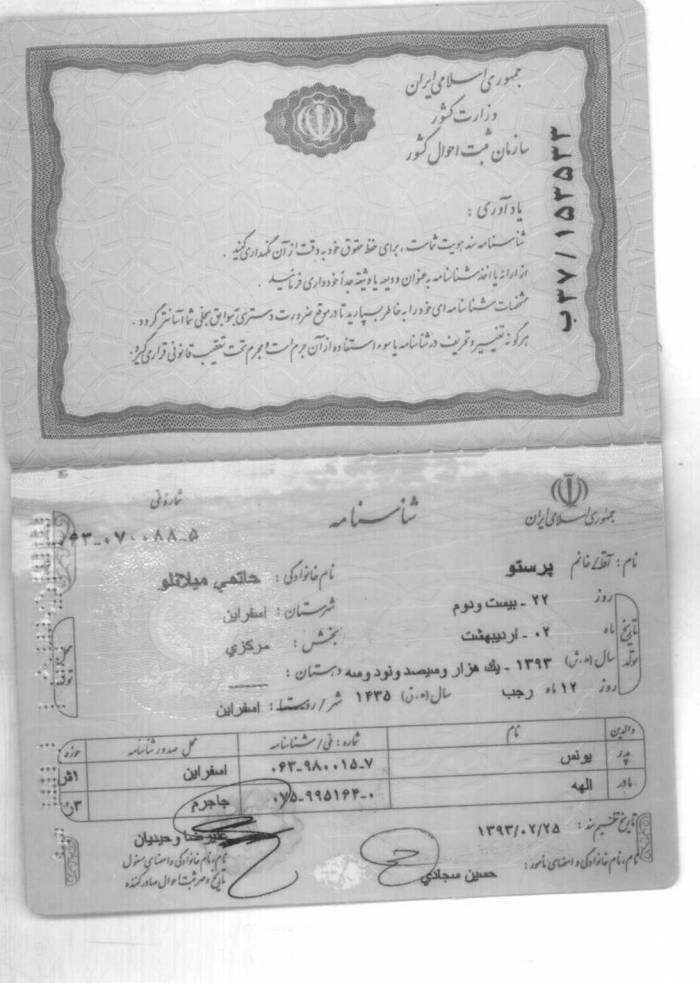 جمهوری اسلامی ایران
وزارت کشور
سازمان ثبت احوال کشور
ب۳۷/۱۵۳۵۳۳
یادآوری :
شناسنامه سند هویت شماست ، برای حفظ حقوق خود به دقت از آن نگهداری کنید .
از ارائه یا اخذ شناسنامه به عنوان ودیعه یا وثیقه جداً خودداری فرمائید .
مشخصات شناسنامه ای خود را به خاطر بسپارید تا در موقع ضرورت دسترسی به سوابق سجلی شما آسانتر گردد .
هرگونه تغییر و تحریف در شناسنامه یا سوء استفاده از آن جرم است و مجرم تحت تعقیب قانونی قرار می گیرد.
جمهوری اسلامی ایران
شناسنامه
شماره ملی
۰۶۳-۰۷۰۰۸۸-۵
نام : آقا/خانم پرستو
نام خانوادگی : حاتمي میلانلو
تاریخ تولد
روز ۲۲ - بیست ودوم
شهرستان : اسفراین
ماه ۰۲ - اردیبهشت
بخش : مرکزي
سال (ه.ش) ۱۳۹۳ - یك هزار وسیصد ونود وسه
دهستان : ------
روز ۱۲ ماه رجب سال (ه.ق) ۱۴۳۵
شهر/روستا : اسفراین
والدین نام شماره : ملی/شناسنامه محل صدور شناسنامه حوزه
پدر یونس ۰۶۳-۹۸۰۰۱۵-۷ اسفراین ۱اش
مادر الهه ۰۷۵-۹۹۵۱۶۴-۰ جاجرم ۳ن
تاریخ تنظیم سند : ۱۳۹۳/۰۲/۲۵
علیرضا وحیدیان
نام، نام خانوادگی و امضای مأمور : حسین سجادي
نام، نام خانوادگی و امضای مسئول
تاریخ و مهر ثبت احوال صادر کننده